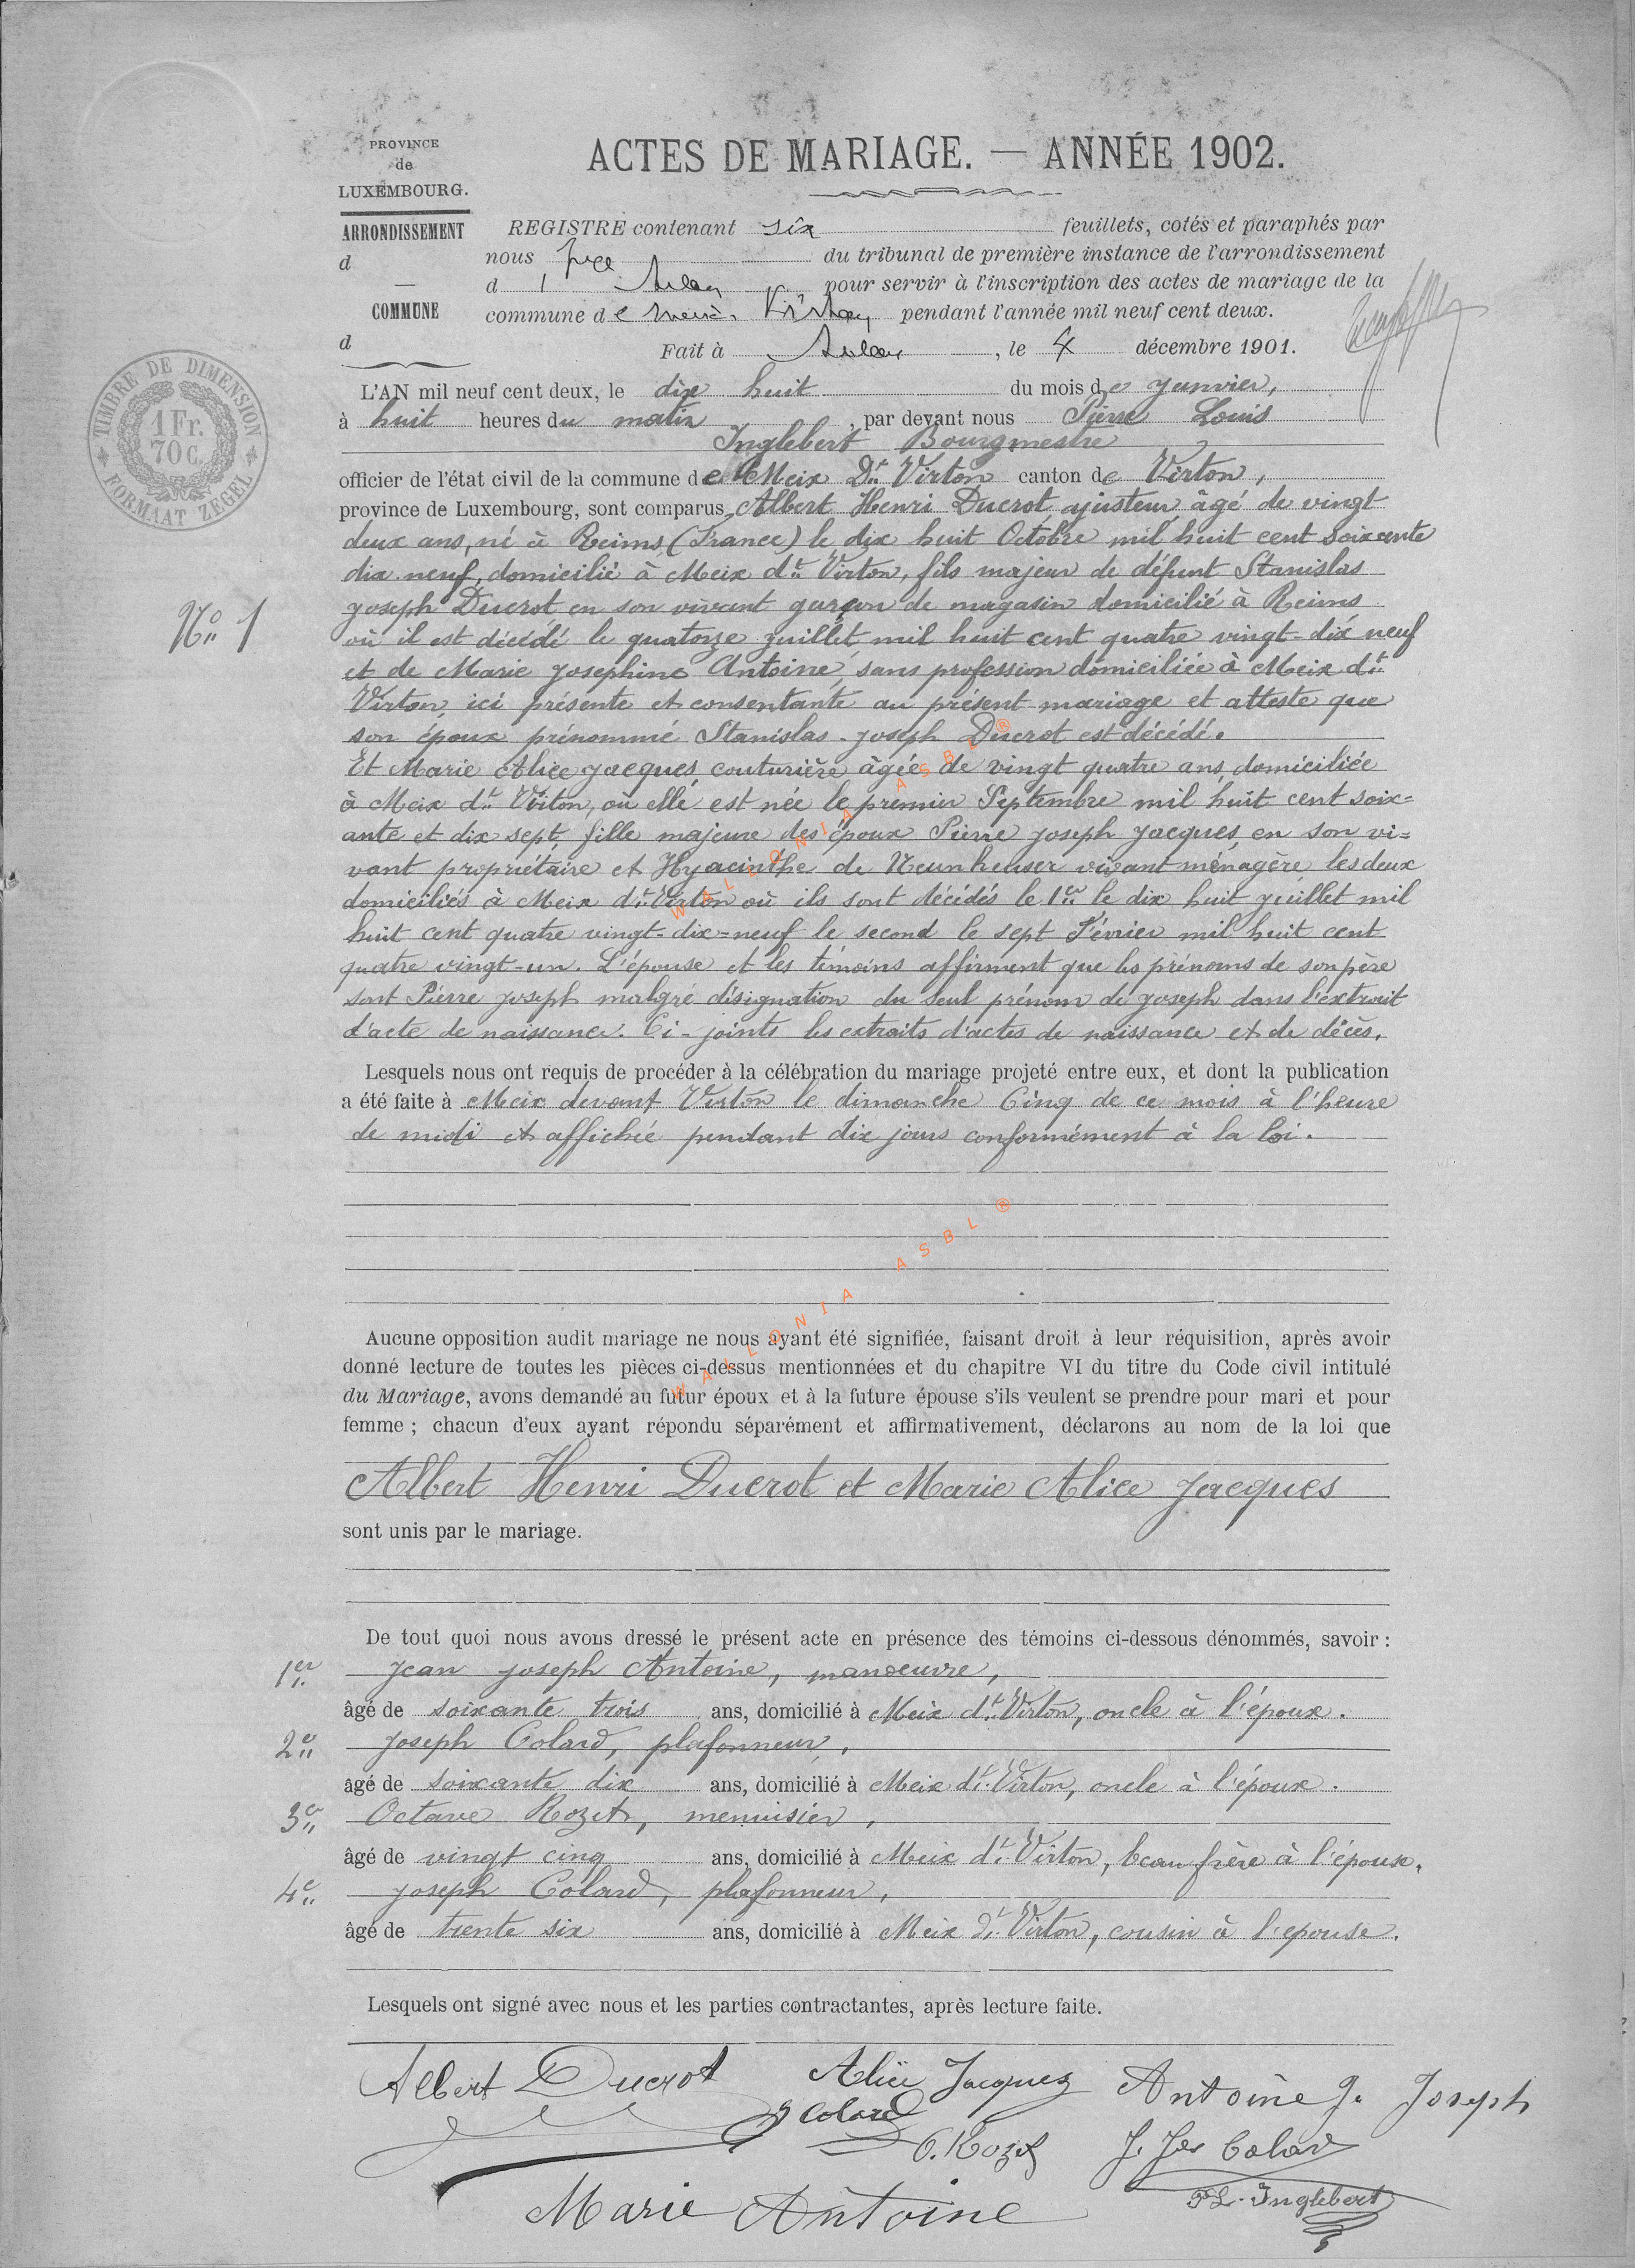 PROVINCE
de
LUXEMBOURG.
ARRONDISSEMENT
d
COMMUNE
d
ACTES DE MARIAGE. — ANNÉE 1902.
REGISTRE contenant six feuillets, cotés et paraphés par
nous juge du tribunal de première instance de l'arrondissement
d' Arlon pour servir à l'inscription des actes de mariage de la
commune de Virton pendant l'année mil neuf cent deux.
Fait à Arlon, le 4 décembre 1901.
TIMBRE DE DIMENSION
1 Fr.
70 C.
FORMAAT ZEGEL
L'AN mil neuf cent deux, le dix huit du mois de Janvier,
à huit heures du matin, par devant nous Pierre Louis
Inglebert Bourgmestre
officier de l'état civil de la commune de Meix Dt Virton canton de Virton,
province de Luxembourg, sont comparus Albert Henri Ducrot, ajusteur, âgé de vingt
deux ans, né à Reims (France) le dix huit Octobre mil huit cent soixante
dix neuf, domicilié à Meix dt Virton, fils majeur de défunt Stanislas
No 1
Joseph Ducrot, en son vivant garçon de magasin domicilié à Reims
où il est décédé le quatorze Juillet mil huit cent quatre vingt-dix neuf
et de Marie Josephine Antoine, sans profession domiciliée à Meix dt
Virton, ici présente et consentante au présent mariage et atteste que
son époux prénommé Stanislas-Joseph Ducrot est décédé.
Et Marie Alice Jacques, couturière, âgée de vingt quatre ans, domiciliée
à Meix dt Virton, où elle est née le premier Septembre mil huit cent soix=
ante et dix sept, fille majeure des époux Pierre Joseph Jacques, en son vi=
vant propriétaire et Hyacinthe de Neunheuser vivant ménagère, les deux
domiciliés à Meix dt Virton où ils sont décédés le 1er le dix huit Juillet mil
huit cent quatre vingt-dix=neuf le second le sept Février mil huit cent
quatre vingt-un. L'épouse et les témoins affirment que les prénoms de son père
sont Pierre Joseph malgré désignation du seul prénom de Joseph dans l'extrait
d'acte de naissance. Ci-joints les extraits d'actes de naissance et de décès.
Lesquels nous ont requis de procéder à la célébration du mariage projeté entre eux, et dont la publication
a été faite à Meix devant Virton le dimanche Cinq de ce mois à l'heure
de midi et affichée pendant dix jours conformément à la loi.
Aucune opposition audit mariage ne nous ayant été signifiée, faisant droit à leur réquisition, après avoir
donné lecture de toutes les pièces ci-dessus mentionnées et du chapitre VI du titre du Code civil intitulé
du Mariage, avons demandé au futur époux et à la future épouse s'ils veulent se prendre pour mari et pour
femme ; chacun d'eux ayant répondu séparément et affirmativement, déclarons au nom de la loi que
Albert Henri Ducrot et Marie Alice Jacques
sont unis par le mariage.
De tout quoi nous avons dressé le présent acte en présence des témoins ci-dessous dénommés, savoir :
1er Jean Joseph Antoine, manoeuvre,
âgé de soixante trois ans, domicilié à Meix dt Virton, oncle à l'époux.
2e Joseph Colard, plafonneur,
âgé de soixante dix ans, domicilié à Meix dt Virton, oncle à l'époux.
3e Octave Rozet, menuisier,
âgé de vingt cinq ans, domicilié à Meix dt Virton, beau frère à l'épouse.
4e Joseph Colard, plafonneur,
âgé de trente six ans, domicilié à Meix dt Virton, cousin à l'epouse.
Lesquels ont signé avec nous et les parties contractantes, après lecture faite.
Albert Ducrot Alice Jacques Antoine J. Joseph
J Colard
O. Rozet J. Jos Colard
Marie Antoine P L. Inglebert
WALLONIA ASBL ®
WALLONIA ASBL ®